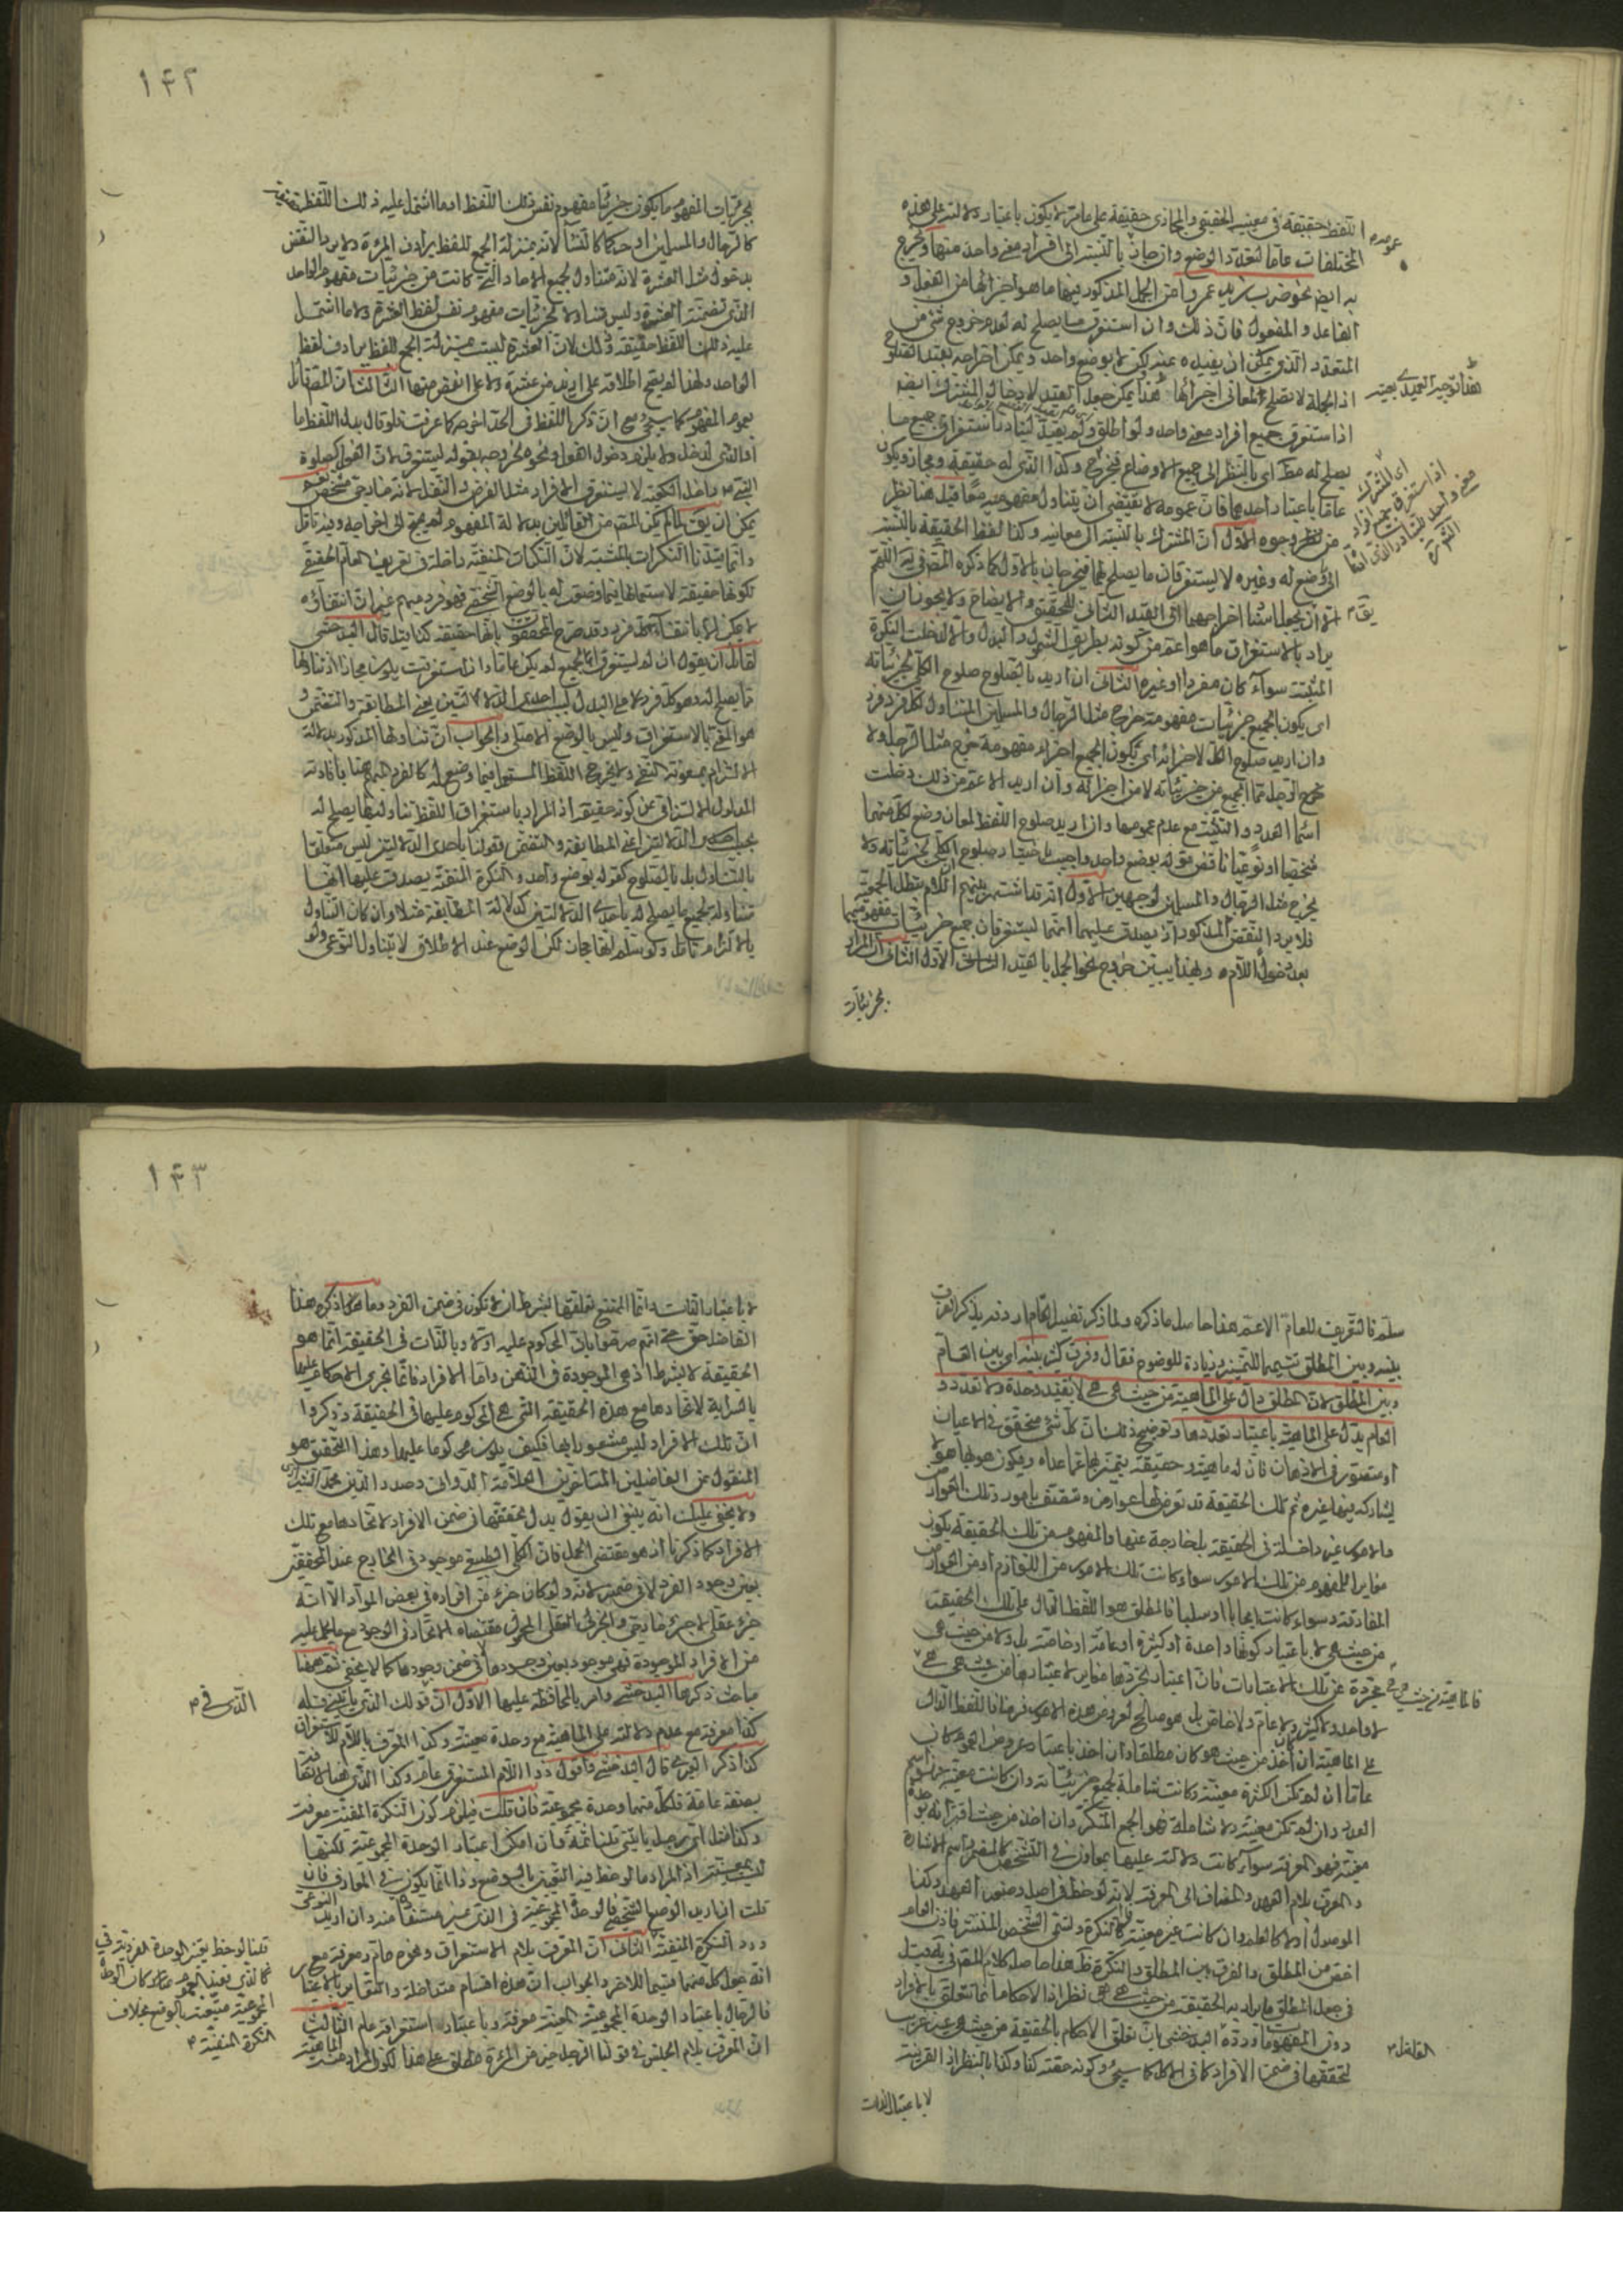 اللفظ حقيقة في معنييه الحقيقي والمجازي حقيقة على ما مر لا يكون باعتبار دلالته على هذه
المختلفات عاما لتعدد الوضع وان جاز بالنسبة الى افراد معنى واحد منها ويخرج
به ايضا نحو ضرب زيد عمروا من الجمل المذكور فيها ما هو اجزائها من الفعل و
الفاعل والمفعول فان ذلك وان استغرق ما يصلح له لعدم خروج شئ من
المتعدد الذي يمكن ان يفيده عنه لكن لا بوضع واحد ويمكن اخراجه بقيد الصلوح
اذ الجملة لا تصلح لمعاني اجزائها هذا يمكن جعل القيد لادخال المشترك ايضا
اذا استغرق جميع افراد معنى واحد ولو اطلق ولم يقيد لتبادر استغراق جميع ما
يصلح له مط اى بالنظر الى جميع الاوضاع فيخرج وكذا الذي له حقيقة ومجاز ويكون
عاما باعتبار احدهما فان عمومه لا يقتضي ان يتناول مفهوميه معا قيل هنا نظر
من وجوه الاول ان المشترك بالنسبة الى معانيه وكذا لفظ الحقيقة بالنسبة
الى وضع له وغيره لا يستغرقان ما يصلح لهما فيخرجان بالاول كما ذكره المص في اللهم
الا ان يجعل اخراجهما الى القيد الثاني للتحقيق والايضاح ولا يجوز ان
يراد بالاستغراق ما هو اعم من كونه بطريق الشمول والبدل والا لدخلت النكرة
المثبتة سواء كان مفردا او غيره الثاني ان اريد بالصلوح صلوح الكلي لجزئياته
اى يكون الجميع جزئيات مفهومه خرج مثل الرجال والمسلمين المتناول لكل فرد فرد
وان اريد صلوح الكل لاجزائه اى يكون الجميع اجزاء مفهومه خرج مثل الرجل ولا
رجل مما الجميع من جزئياته لا من اجزائه وان اريد الاعم من ذلك دخلت
اسماء العدد والتثنية مع عدم عمومها وان اريد صلوح اللفظ لمعان وضع لكل منهما
شخصيا او نوعيا ناقض قوله بوضع واحد واجيب باختيار صلوح الكلي لجزئياته ولا
يخرج مثل الرجال والمسلمين لوجهين الاول انه قد اشتهر بينهم ان اللام تبطل الجمعية
فلا يرد النقض المذكور اذ يصدق عليهما انهما يستغرقان جميع جزئيات مفهوميهما
بعد دخول اللام وبهذا يتبين خروج نحو الجمل بالقيد الاول الثاني ان المراد
بجزئيات
عمومه
هذا توجيه العميدى بعينه
اى المشترك
اذا استغرق جميع افراد
معنى واحد
يق
١٤٢
بجزئيات المفهوم ما يكون جزئيا مفهوم نفس ذلك اللفظ او ما اشتمل عليه ذلك اللفظ حقيقة
كالرجال والمسلمين او حكما كالنساء لانه بمنزلة الجمع للفظ يرادف المرءة ولا يرد النقض
بدخول مثل العشرة لانه متناول لجميع الاحاد التي كانت من جزئيات مفهوم الواحد
الذي تضمنته العشرة وليس متناولا لجزئيات مفهوم نفس لفظ العشرة ولا ما اشتمل
عليه ذلك اللفظ حقيقة وذلك لان العشرة ليست بمنزلة الجمع للفظ يرادف لفظ
الواحد ولهذا لم يصح اطلاقه على ازيد من عشرة ولا على انقص منها الثالث ان المص قائل
بعموم المفهوم كما سيجئ مع ان ذكر اللفظ في الحد اخرجه كما عرفت فلو قال بدل اللفظ ما
او الشئ لدخل ولا يلزم دخول الفعل ونحوه لخروجه بقوله يستغرق لان الفعل كصلوة
النبي داخل الكعبة لا يستغرق الافراد مثل الفرض والنفل لانه خارجى متشخص نعم
يمكن ان يق لما لم يكن المص من القائلين بدلالة المفهوم لم يحتج الى اخراجه وفيه تامل
وانما قيدنا النكرات بالمثبتة لان النكرات المنفية داخلة في تعريف العام الحقيقي
لكونها حقيقة لاستعمالها فيما وضعت له بالوضع الشخصي فهو فرد مبهم غير ان انتفائه
لا يمكن الا بانتفاء كل فرد وقد صرح المحققون بانها حقيقة كذا قيل قال البدخشى
لقائل ان يقول ان لم يستغرق الجميع لم يكن عاما وان استغرقت يلزم مجازا اذ تناولها
ما يصلح له وهو كل فرد لا على البدل ليس احدى الدلالتين يعني المطابقة والتضمن و
هو المعنى بالاستغراق وليس بالوضع الاصلي والجواب ان تناولها المذكور بدلالة
الالتزام بمعونة النفي ولا يخرج اللفظ المستعمل فيما وضع له كالفرد المبهم هنا بافادته
المدلول الالتزامي عن كونه حقيقة اذ المراد باستغراق اللفظ تناوله لما يصلح له
بحسب احدى الدلالتين اعني المطابقة والتضمن فقولنا باحدى الدلالتين ليس متعلقا
بالتناول بل بالصلوح كقوله بوضع واحد والنكرة المنفية يصدق عليها انها
تتناول لجميع ما يصلح له باحدى الدلالتين كدلالة المطابقة مثلا وان كان التناول
بالالتزام تامل ولو سلم انها مجاز لكن الوضع عند الاطلاق لا يتناول النوعي ولو
سلم فالتعريف للعام الاعم هذا حاصل ما ذكره ولما ذكر تفسير العام اردفه بذكر الفرق
بينه وبين المطلق تتميما للتمييز وزيادة للوضوح فقال وفرق كثير بينه اى بين العام
وبين المطلق لان المطلق دال على الماهية من حيث هى هى لا بقيد وحدة ولا تعدد و
العام يدل على الماهية باعتبار تعددها وتوضيح ذلك ان كل شئ متحقق في الاعيان
او متصور في الاذهان فان له ماهية وحقيقة يتميز بها عما عداه ويكون هو بها هو لا
يشاركه فيها غيره ثم تلك الحقيقة قد تعرضها عوارض وتقترن بامور وتلك العوارض
والامور غير داخلة في الحقيقة بل خارجة عنها والمفهوم من تلك الحقيقة يكون
مغايرا للمفهوم من تلك الامور سواء كانت تلك الامور من اللوازم او من العوارض
المفارقة وسواء كانت ايجابا او سلبا فالمطلق هو اللفظ الدال على تلك الحقيقة
من حيث هى لا باعتبار كونها واحدة او كثيرة او عامة او خاصة بل ولا من حيث هى
مجردة عن تلك الاعتبارات فان اعتبار تجردها مغاير لاعتبارها من حيث هى هى
لا واحد ولا كثير ولا عام ولا خاص بل هو صالح لعروض هذه الامور فاللفظ الدال
على الماهية ان اخذ من حيث هو كان مطلقا وان اخذ باعتبار عروض العموم كان
عاما ان لم تكن الكثرة معينة وكانت شاملة لجميع جزئياته وان كانت معينة فهو اسم
العدد وان لم تكن معينة ولا شاملة فهو الجمع المنكر وان اخذ من حيث اقترانه بوحدة
معينة فهو المعرفة سواء كانت دلالته عليها بمعاون في التشخص كالضمير واسم الاشارة
والمعرف بلام العهد والمضاف الى المعرفة لانه لوحظ في اصل وضعه العهد وكذا
الموصول او لا كالعلم وان كانت غير معينة فالنكرة وتسمى الشخص المنتشر فاذن العام
اخص من المطلق والفرق بين المطلق والنكرة ظ هذا حاصل كلام المص في قيل
في جعل المطلق ما يراد به الحقيقة من حيث هى هى نظر اذ الاحكام انما تتعلق بالافراد
دون المفهومات ورده البدخشى بان تعلق الاحكام بالحقيقة من حيث هى غير غريب
لتحققها في ضمن الافراد كما في الكل كما سيجئ وكونه حقيقة كذا وكذا بالنظر الى القرينة
لا باعتبار الذات
فالماهية من حيث هى هى
الفاضل
١٤٣
لا باعتبار الذات وانما الممتنع تعلقها بشرط ان لا تكون في ضمن الفرد وما ذكره هذا
الفاضل حق حتى انهم صرحوا بان المحكوم عليه اولا وبالذات في الحقيقة انما هو
الحقيقة لا بشرط اذ هى الموجودة في الذهن واما الافراد فانما تجرى الاحكام عليها
بالسراية لاتحادها مع هذه الحقيقة التي هى المحكوم عليها في الحقيقة وذكروا
ان تلك الافراد ليس مشعورا بها فكيف يكون محكوما عليها وهذا التحقيق هو
المنقول عن الفاضلين المتاخرين العلامة الدوانى وصدر الدين محمد الشيرازى
ولا يخفى عليك انه ينبغي ان يقول بدل تحققها في ضمن الافراد لاتحادها مع تلك
الافراد كما ذكرنا اذ هو مقتضى الحمل فان الكلي الطبيعي موجود في الخارج عند المحققين
بعين وجود الفرد لا في ضمنه لانه ولو كان جزء من افراده في بعض المواد الا انه
جزء عقلي لا جزء خارجى والجزء العقلي المحمول مقتضاه الاتحاد في الوجود مع ما يحمل عليه
من الافراد الموجودة فهى موجودة بعين وجودها لا في ضمن وجودها كما لا يخفى ثم ههنا
مباحث ذكرها البدخشى وامر بالمحافظة عليها الاول ان قولك الذي ياتيني فله
كذا معرفة مع عدم دلالته على الماهية مع وحدة معينة وكذا المعرف باللام للاستغراق
كذا ذكر العبرى قال البدخشى واقول ذو اللام المستغرق عام وكذا الذي
بصفة عامة فلكل منهما وحدة مجموعية فان قلت فيلزم كون النكرة المنفية معرفة
وكذا مثل اى رجل ياتيني قلنا ثمة وان امكن اعتبار الوحدة المجموعية لكنها
ليست بمعينة اذ المراد ما لوحظ فيه التعين بالوضع وذا انما يكون في المعارف فان
قلت ان اريد الوضع الشخصي فالوحدة المجموعية في الذي غير مستفادة منه وان اريد النوعي
ورد النكرة المنفية الثاني ان المعرف بلام الاستغراق ونحوه عام ومعرفة مع
انه جعل كل منهما قسيما للاخر والجواب ان هذه اقسام متداخلة والتقابل بالاعتبار
فالرجال باعتبار الوحدة المجموعية المعينة معرفة وباعتبار استغراقه عام الثالث
ان المعرف بلام الجنس في قولنا الرجل خير من المرءة مطلق على هذا لكون المراد منه الماهية
الذي في
قلنا لوحظ تعين الوحدة الفردية في
الذي بعينه العموم
المجموعية متعينة بالوضع بخلاف
النكرة المنفية